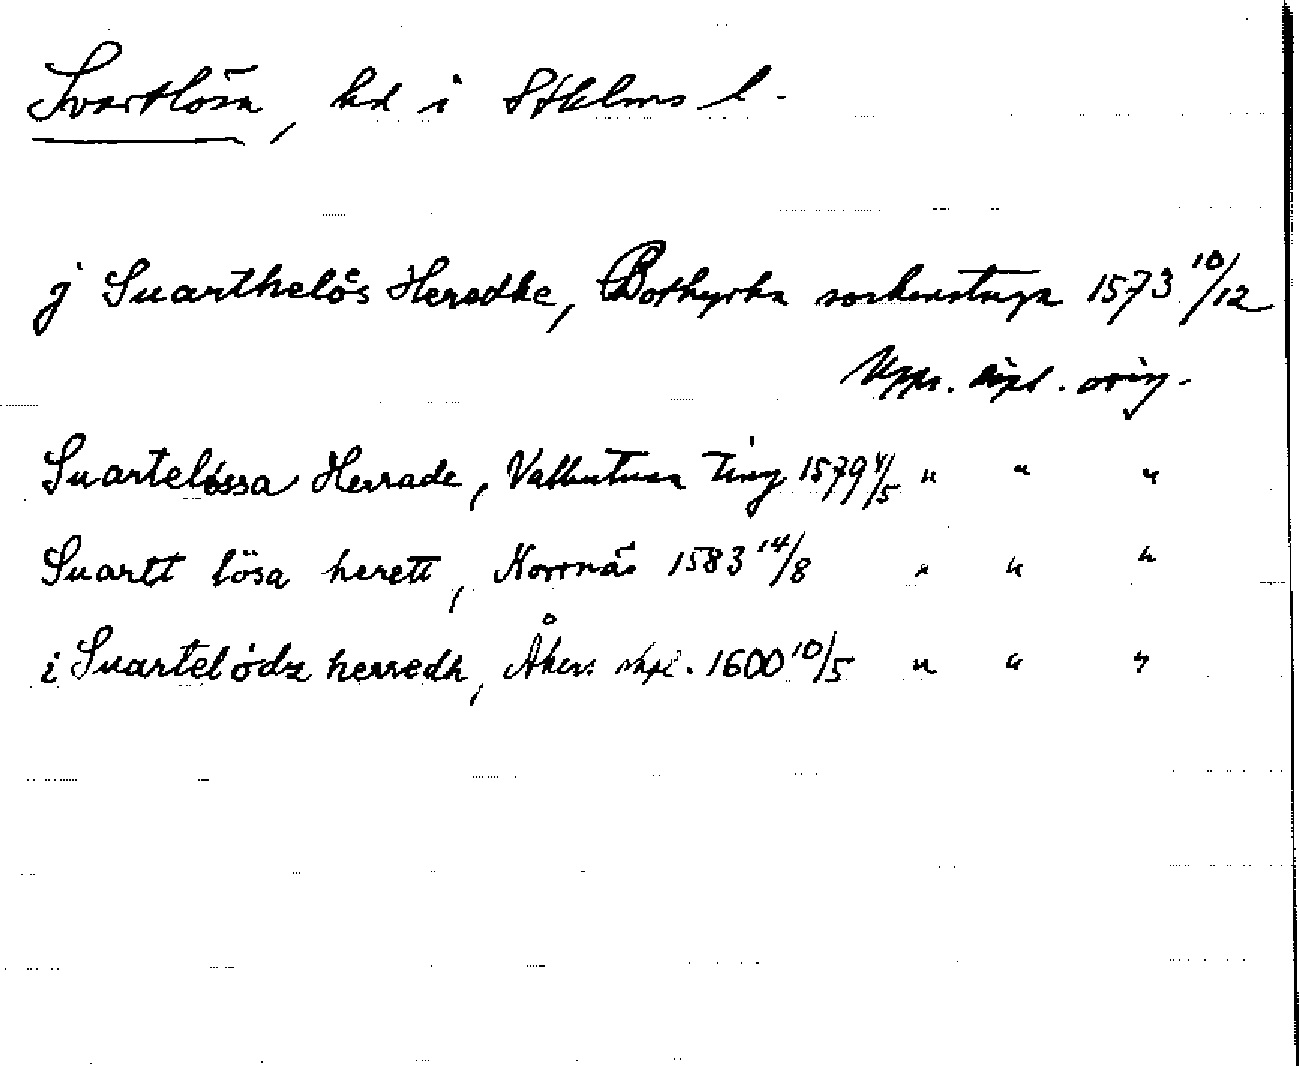 Svartlösa, hd i Sthlms l.
j Suarthelös Heredhe, Bothyrka sockenstuga 1573 10/12
Upps. dipl. orig.
Suartelössa Herrade, Vallentuna Ting 1579 4/5 " " "
Suartt lösa herett, Norrnäs 1583 14/8 " " "
i Suartelödz herredh, Åkers skpl. 1600 10/5 " " "